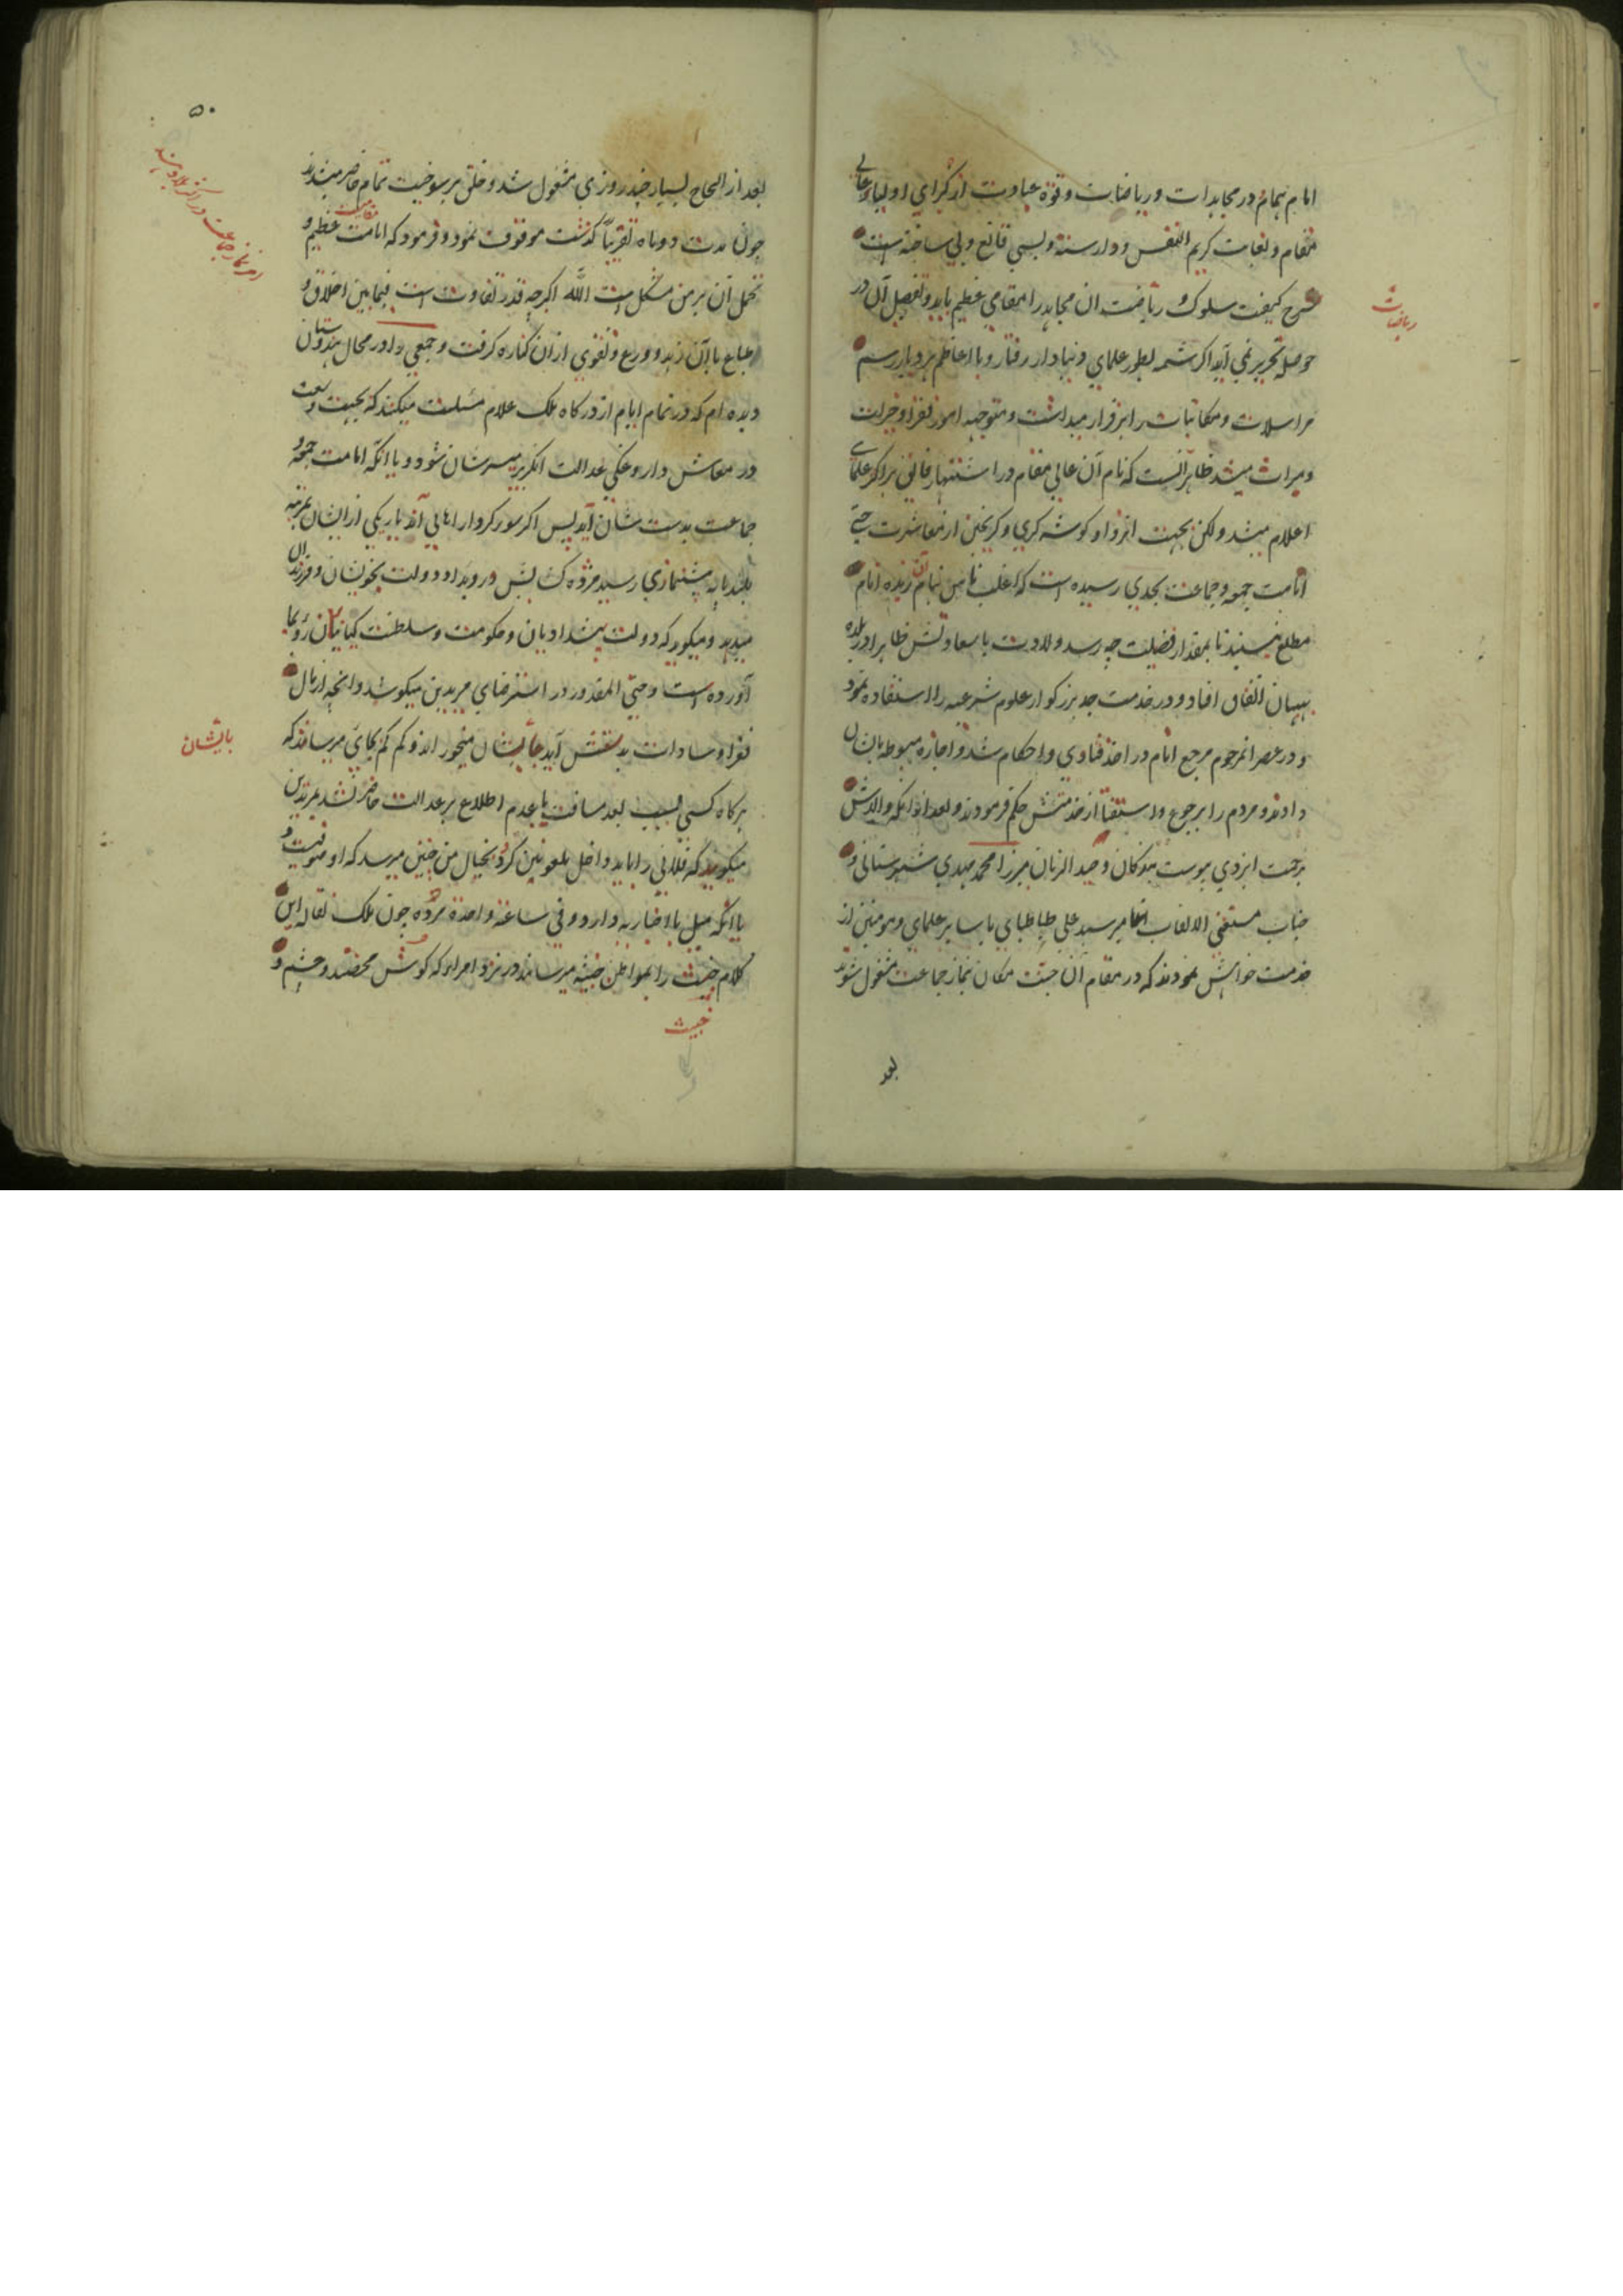 امام همام در مجاهدات و ریاضات و قوة عبادت از کبرای اولیاء عالی
مقام و بغایت کریم النفس و وارسته و بسی قانع و بی ساخته است
شرح کیفیت سلوک و ریاضت آن مجاهد را مقامی عظیم باید و تفصیل آن در
حوصله تحریر نمی آید اکر شمه بطور علمای دنیادار رفتار و با اعاظم هر دیار رسم
مراسلات و مکاتبات را برقرار میداشت و متوجه امور فقرا و خیرات
و میراث میشد ظاهر آنست که نام آن عالی مقام در اشتهار فائق بر اکثر علمای
اعلام میشد ولکن بجهت انزوا و کوشه کیری و کریختن از معاشرت حتی
امامت جمعه و جماعت بحدی رسیده است که اغلب ناس بنام آن زبده انام
مطلع نیستند تا بمقدار فضیلت چه رسد ولادت باسعادتش ظاهرا در بلده
بهبهان اتفاق افتاد و در خدمت جد بزرکوار علوم شرعیه را استفاده نمود
و در عصر انمرحوم مرجع انام در اخذ فتاوی و احکام شد و اجازه مبسوطه بایشان
دادند و مردم را برجوع و استفتا از خدمتش حکم فرمودند و بعد از انکه والدش
برحمت ایزدی پیوست بندکان وحید الزمان میرزا محمد مهدی شهرستانی و
جناب مستغنی الالقاب میر سید علی طباطبای با سایر علمای و مومنین از
خدمت خواهش نمودند که در مقام آن جنت مکان بنماز جماعت مشغول شوند
بعد
ریاضات
۵۰
بعد از الحاح بسیار چند روزی مشغول شد و خلق برسوخیت تمام حاضر میشدند
چون مدت دو ماه تقریباً کذشت موقوف نمود و فرمود که امامت عظیم و
تحمل آن بر من مشکل است الله اکبر چه قدر تفاوت است فیما بین اخلاق و
طباع با آن زهد و ورع و تقوی از آن کناره کرفت و جمعی را در محال هندوستان
دیده ام که در تمام ایام از درکاه ملک علام مسئلت میکنند که بجهت وسعت
در معاش داروغکی عدالت انکریز میسرشان شود و یا انکه امامت جمعه و
جماعت بدست شان آید پس اکر
بلند پایه پیشنمازی رسید مژده و دولت بخویشان و فرزندان
میدهد و میکوید که دولت پیشدادیان و حکومت و سلطنت کیانیان رو بما
آورده است و حتی المقدور در استرضای مریدین میکوشد و انچه از مال
فقرا و سادات بدستش آید بایشان میخوراند و کم کم بجای میرساند که
هرکاه کسی بسبب بعد مسافت یا عدم اطلاع بر عدالت حاضر نشد بمریدین
میکویند که فلانی را باید داخل ملعونین کرد و بخیال من چنین میرسد که او صوفیست و
یا انکه میل باخباریه دارد و فی ساعة واحدة مرده چون ملک نقاله این
کلام خبیث را بمواطن خبیثه میرسانند و در نزد امراء که کوش محضند و چشم و
بایشان
خبیث